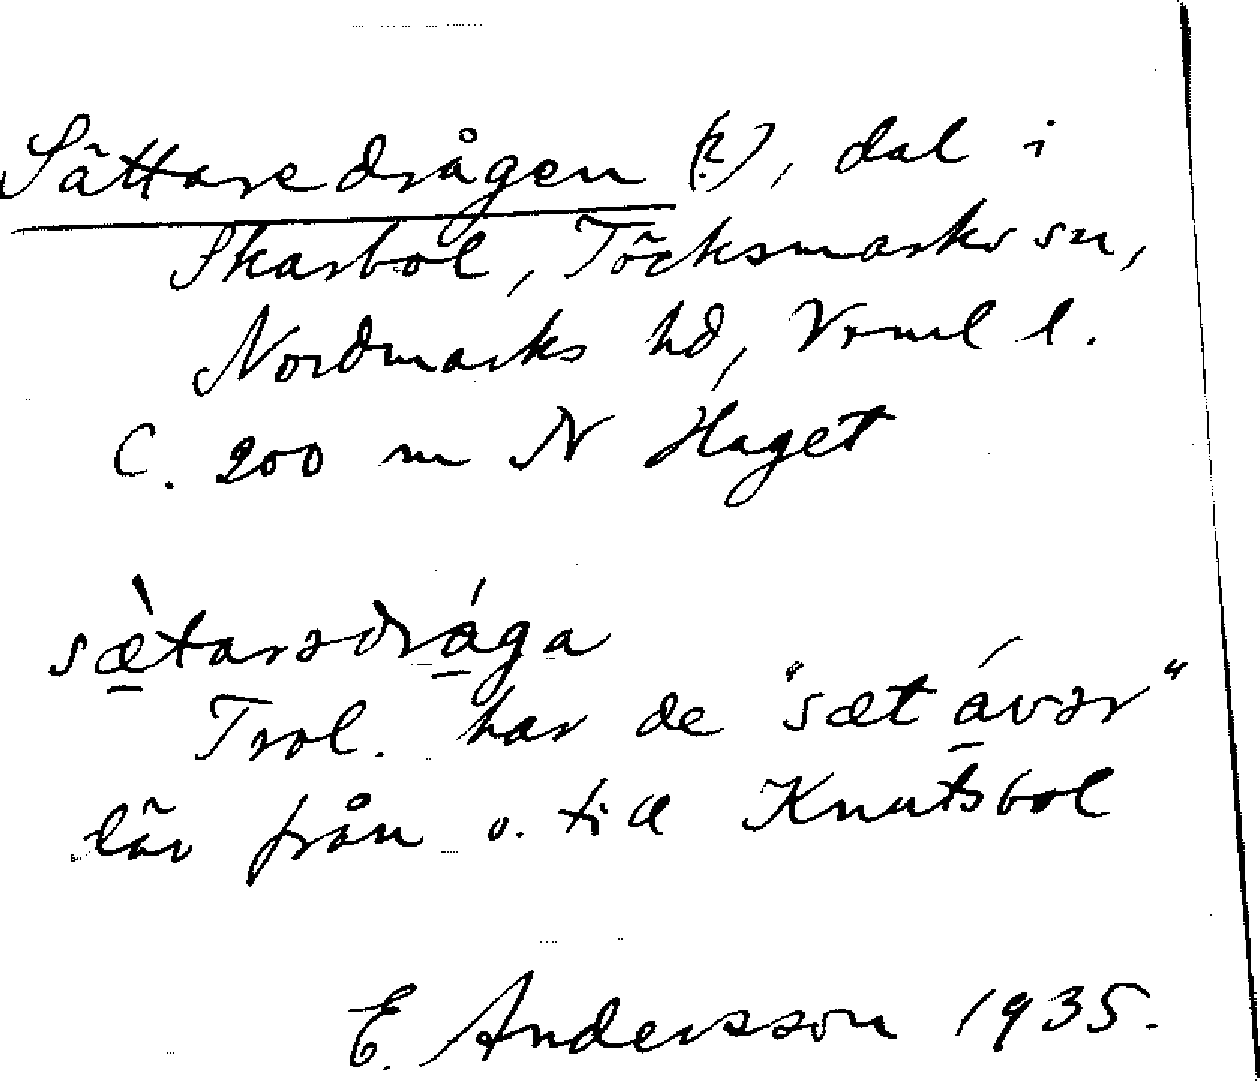 Sättaredrågen (?), dal i
Skarbol, Töcksmarks sn,
Nordmarks hd, Vrml l.
C. 200 m N Haget
sæ̱̀tarədrá̱ga
Trol. har de "sætá̱vər"
där från o. till Knutsbol
E. Andersson 1935.